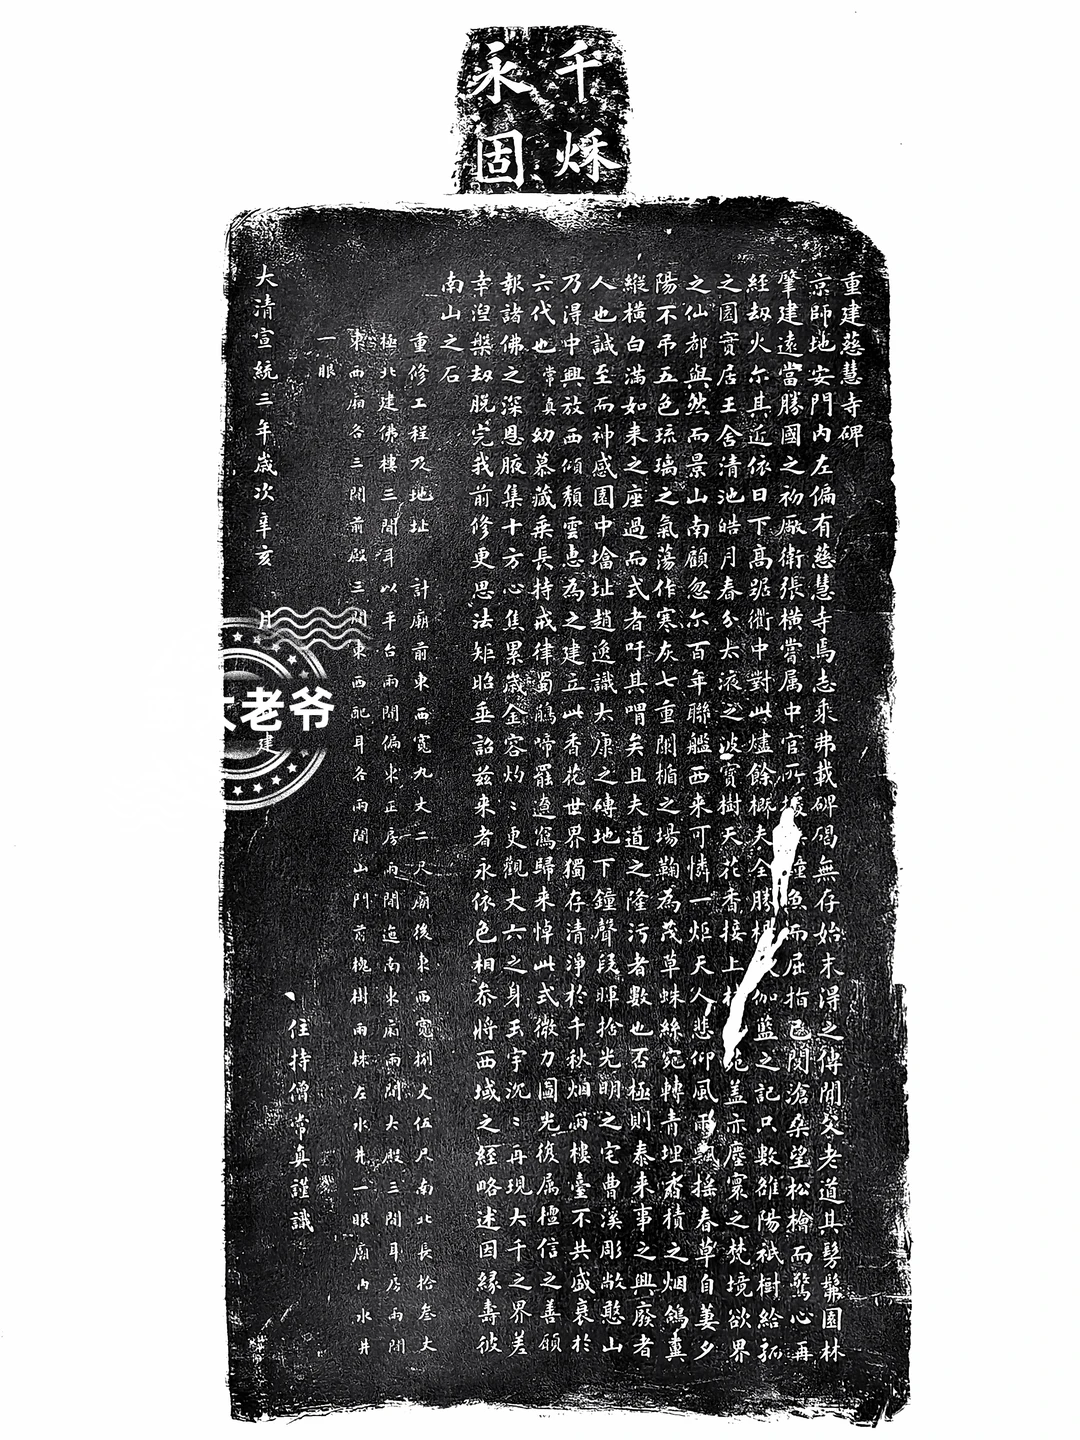 千秌
永固
重建慈慧寺碑
京師地安門內左偏有慈慧寺焉志乘弗載碑碣無存始末得之傳聞父老道其髣髴園林
肇建遠當勝國之初廠衛張橫嘗属中官所 魚而屈指已閱滄桑望松檜而驚心再
經劫火尔其近依日下髙踞衢中對此燼餘概夫全勝 伽藍之記只數雒陽祇樹給孤
之園實居王舍清池皓月春分太液之波寳樹天花香接上 蓋亦塵寰之梵境欲界
之仙都與然而景山南顧忽尔百年聯艦西來可憐一炬天人悲仰風雨飄摇春草自萋夕
陽不弔五色琉璃之氣蕩作寒灰七重闌楯之場鞠為茂草蛛絲宛轉青埋香積之烟鴿糞
縱橫白滿如来之座過而式者吁其喟矣且夫道之隆污者數也否極則泰来事之興廢者
人也誠至而神感園中墖址趙逸識太康之磚地下鐘聲段暉捨光明之宅曹溪彫敝憨山
乃得中興放西傾頹雲恵為之建立此香花世界獨存清淨於千秋烟雨樓臺不共盛衰於
六代也常真幼慕藏乘長持戒律蜀鵑啼罷遼窵歸来悼此式微力圖光復属檀信之善願
報諸佛之深恩腋集十方心焦累歳金容灼〻更觀丈六之身玉宇沉〻再現大千之界差
幸涅槃劫脱完我前修更思法矩昭垂詒兹来者永依色相叅將西域之經略述因緣壽彼
南山之石
重修工程及地址 計廟前東西寬九丈二尺廟後東西寬捌丈伍尺南北長拾叁丈
極北建佛樓三間耳以平台兩間偏東正房兩間迤南東廂兩間大殿三間耳房兩間
東西廂各三間前殿三間東西配耳各兩間山門前槐樹兩株左水井一眼廟內水井
一眼
住持僧常真謹識
大清宣統三年歲次辛亥 月 建
大老爷